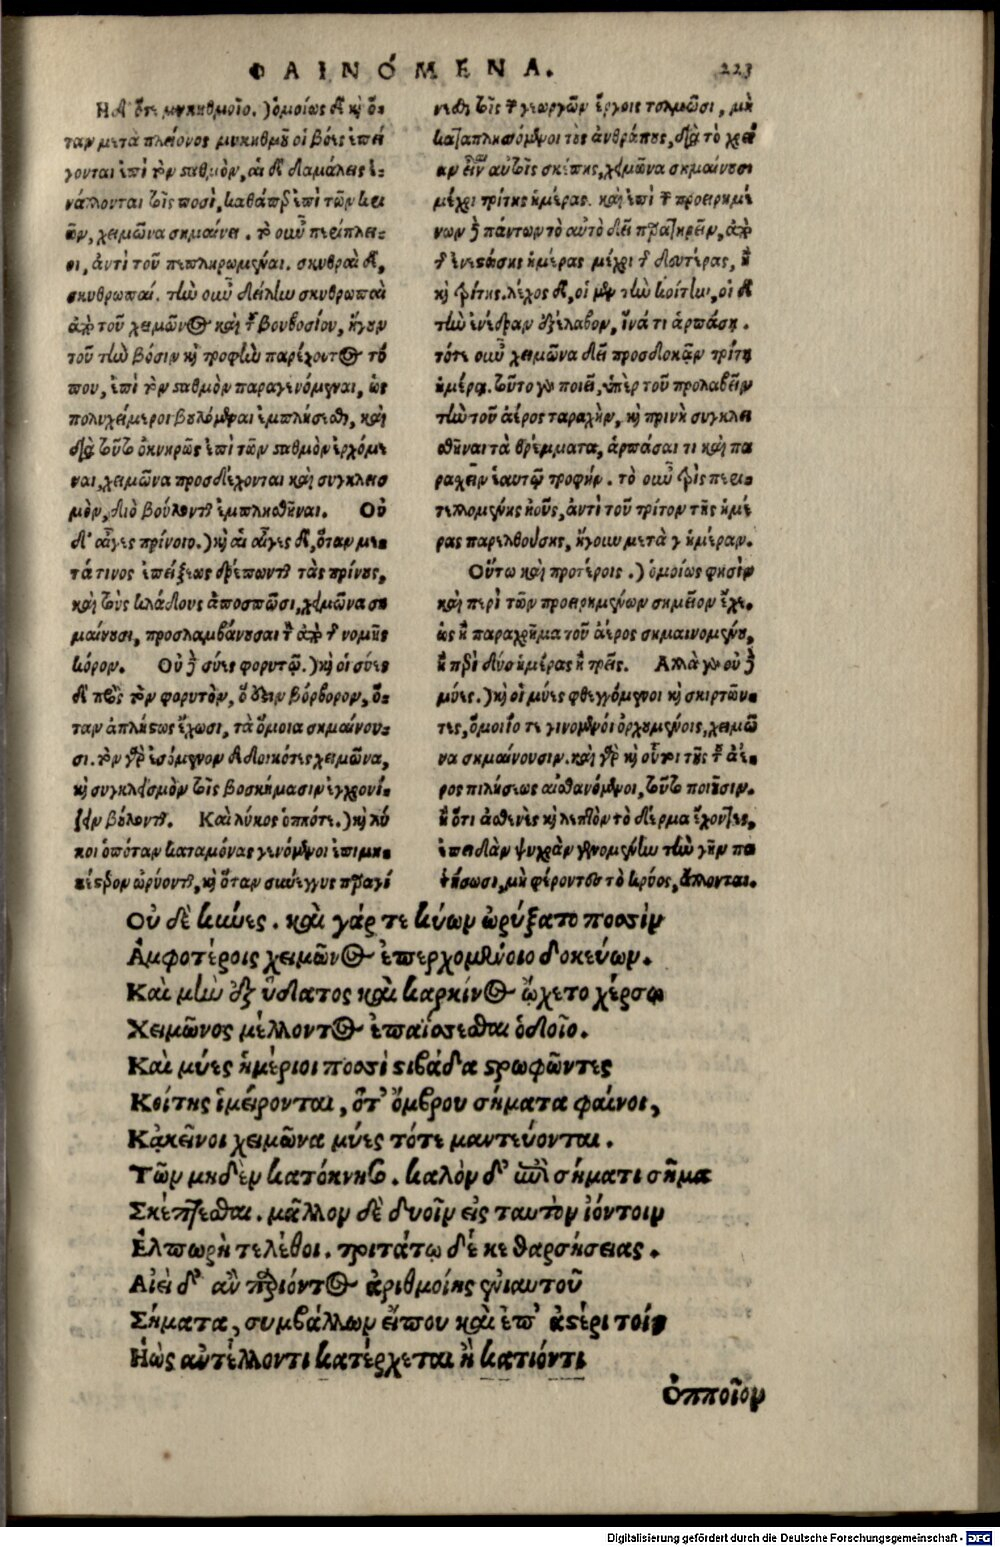 ΦΑΙΝΌΜΕΝΑ.
223
Ἠ δ' ὅτε μυκηθμοῖο.) ὁμοίως δὲ κὴ ὅ-
ταν μετὰ πλείονος μυκηθμοῦ οἱ βόες ἐπεί
γονται ἐπὶ τὸν σαθμὸν, αἱ δὲ δαμάλεις ἐ-
νάλλονται τοῖς ποσὶ, καθάπερ ἐπὶ τῶν
χειμῶνα σημαίνει. τὸ οὖν
σι, ἀντὶ τοῦ πεπληρωμέναι. σκυθραὶ δὲ,
σκυθρωπαί. τὴν οὖν δείλην σκυθρωπαὶ
ἀπὸ τοῦ χειμῶνος καὶ τοῦ βουβοσίου, ἤγουν
τοῦ τὴν βόσιν κὴ τροφὴν παρέχοντος τό
που, ἐπὶ τὸν σταθμὸν παραγινόμεναι, ὡς
πολυχείμεροι βουλόμεναι ἐμπλησθῆ, καὶ
διὰ τοῦτο ὀκνηρῶς ἐπὶ τῶν σταθμὸν ἐρχόμε
ναι, χειμῶνα προσδέχονται καὶ συγκλεισ
μὸν, διὸ βούλονται ἐμπλησθῆναι. Οὐ
δ' αἶγες πρίνοιο.) κὴ αἱ αἶγες δὲ, ὅταν με-
τά τινος ἐπείξεως τὰς πρίνους,
καὶ τοὺς κλάδους ἀποσπῶσι, χειμῶνα ση
μαίνουσι, προσλαμβάνουσαι τὸν ἀπὸ τῆς νομῆς
κόρον. Οὐδὲ σύες φορυτῷ.) κὴ οἱ σύες
δὲ πρὸς τὸν φορυτὸν, ὅ ἐστιν βόρβορον, ὅ-
ταν ἀπλήστως ἔχωσι, τὰ ὅμοια σημαίνου-
σι. τὸν γὰρ ἐσόμενον δεδοικότες χειμῶνα,
κὴ συγκλεισμὸν τοῖς βοσκήμασιν ἐγχρονί-
ζειν βούλονται. Καὶ λύκος ὁππότε.) κὴ λύ
κοι ὁπόταν καταμόνας γινόμενοι ἐπιμη-
κέστερον ὠρύονται, κὴ ὅταν σύνεγγυς παραγέ
νωνται τοῖς τῶν γεωργῶν ἔργοις τολμῶσι, μὴ
καταπλησσόμενοι τοὺς ἀνθρώπους, διὰ τὸ χρεί
αν εἶναι αὐτοῖς σκέπης, χειμῶνα σημαίνουσι
μέχρι τρίτης ἡμέρας. καὶ ἐπὶ τῶν προειρημέ
νων δὲ πάντων τὸ αὐτὸ δεῖ παρατηρεῖν, ἀπὸ
τῆς ἐνεστώσης ἡμέρας μέχρι τῆς δευτέρας, ἢ
κὴ τρίτης. λέχος δὲ, οἱ μὲν τὴν κοίτην, οἱ δὲ
τὴν ἐνέδραν ἐξέλαβον, ἵνά τι ἁρπάσῃ.
τότε οὖν χειμῶνα δεῖ προσδοκᾷν τρίτῃ
ἡμέρᾳ. τοῦτο γὰρ ποιεῖ, ὑπὲρ τοῦ προλαβεῖν
τὴν τοῦ ἀέρος ταραχὴν, κὴ πρινὴ συγκλει
σθῆναι τὰ θρέμματα, ἁρπάσαι τι καὶ πα
ρασχεῖν ἑαυτῷ τροφήν. τὸ οὖν τρὶς περι-
τελλομένης ἠοῦς, ἀντὶ τοῦ τρίτον τῆς ἡμέ
ρας παρελθούσης, ἤγουν μετὰ γ ἡμέραν.
Οὕτω καὶ προτέροις.) ὁμοίως φησὶν
καὶ περὶ τῶν προειρημένων σημεῖον ἔχε-
ὡς ἢ παραχρῆμα τοῦ ἀέρος σημαινομένου,
ἢ περὶ δύο ἡμέρας ἢ τρεῖς. Ἀλλὰ γὰρ οὐδὲ
μύες.) κὴ οἱ μύες φθεγγόμενοι κὴ σκιρτῶν-
τες, ὅμοιόν τι γινομένοι ὀρχουμένοις, χειμῶ
να σημαίνουσιν. καὶ γὰρ κὴ οὗτοι τῆς τοῦ ἀέ-
ρος πιλήσεως αἰσθανόμενοι, τοῦτο ποιοῦσιν.
ἢ ὅτι ἀσθενὲς κὴ λεπτὸν τὸ δέρμα ἔχοντες,
ἐπειδὰν ψυχρὰν γενομένην τὴν γῆν πα
τήσωσι, μὴ φέροντες τὸ κρύος, ἅλλονται.
Οὐ δὲ κύνες. καὶ γάρ τε κύων ὠρύξατο ποσσὶν
Ἀμφοτέροις χειμῶνος ἐπερχομένοιο δοκεύων.
Καὶ μὴν ἐξ ὕδατος καὶ καρκίνος ᾤχετο χέρσῳ
Χειμῶνος μέλλοντος ἐπαΐσσεσθαι ὁδοῖο.
Καὶ μύες ἡμέριοι ποσσὶ στιβάδα στρωφῶντες
Κοίτης ἱμείρονται, ὅτ' ὄμβρου σήματα φαίνοι,
Κᾀκεῖνοι χειμῶνα μύες τότε μαντεύονται.
Τῶν μηδὲν κατόκνησο. καλὸν δ' ἐπὶ σήματι σῆμα
Σκέπτεσθαι. μᾶλλον δὲ δυοῖν εἰς ταυτὸν ἰόντοιν
Ἐλπωρὴ τελέθοι. τριτάτῳ δέ κε θαρσήσειας.
Αἰεὶ δ' ἂν παριόντος ἀριθμοίης ἐνιαυτοῦ
Σήματα, συμβάλλων εἴπου καὶ ἐπ' ἀστέρι τοίη
Ἠὼς ἀντέλλοντι κατέρχεται ἢ κατιόντι
Ὁπποῖον
Digitalisierung gefördert durch die Deutsche Forschungsgemeinschaft - DFG